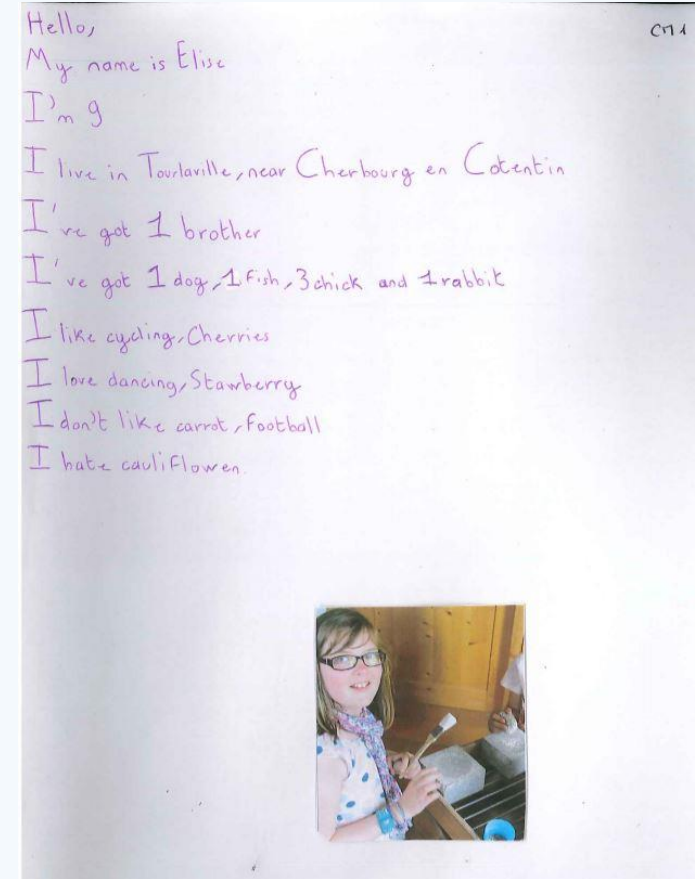 Hello,
CM1
My name is Elise
I'm 9
I live in Tourlaville, near Cherbourg en Cotentin
I've got 1 brother
I've got 1 dog, 1 fish, 3 chick and 1 rabbit
I like cycling, Cherries
I love dancing, Stawberry
I don't like carrot, football
I hate cauliflowen.